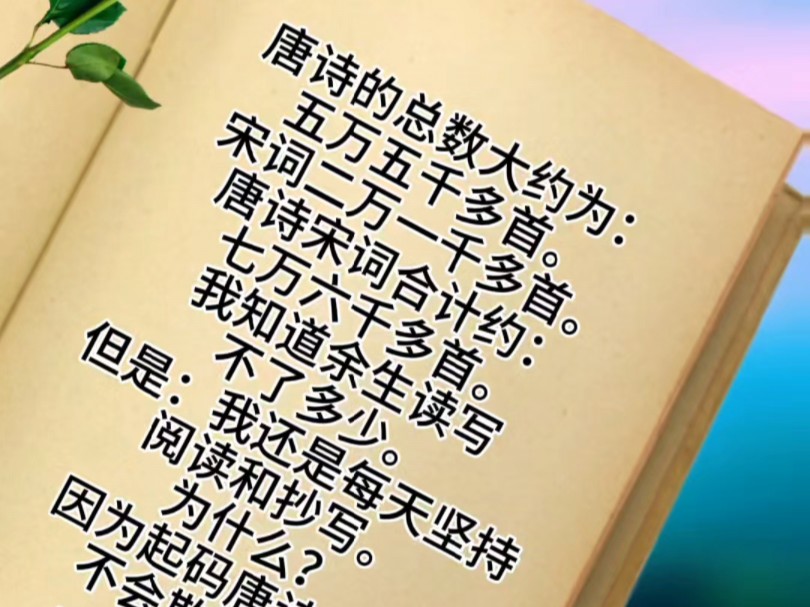 唐诗的总数大约为：
五万五千多首。
宋词二万一千多首。
唐诗宋词合计约：
七万六千多首。
我知道余生读写
不了多少。
但是：我还是每天坚持
阅读和抄写。
为什么？
因为起码唐诗
不会